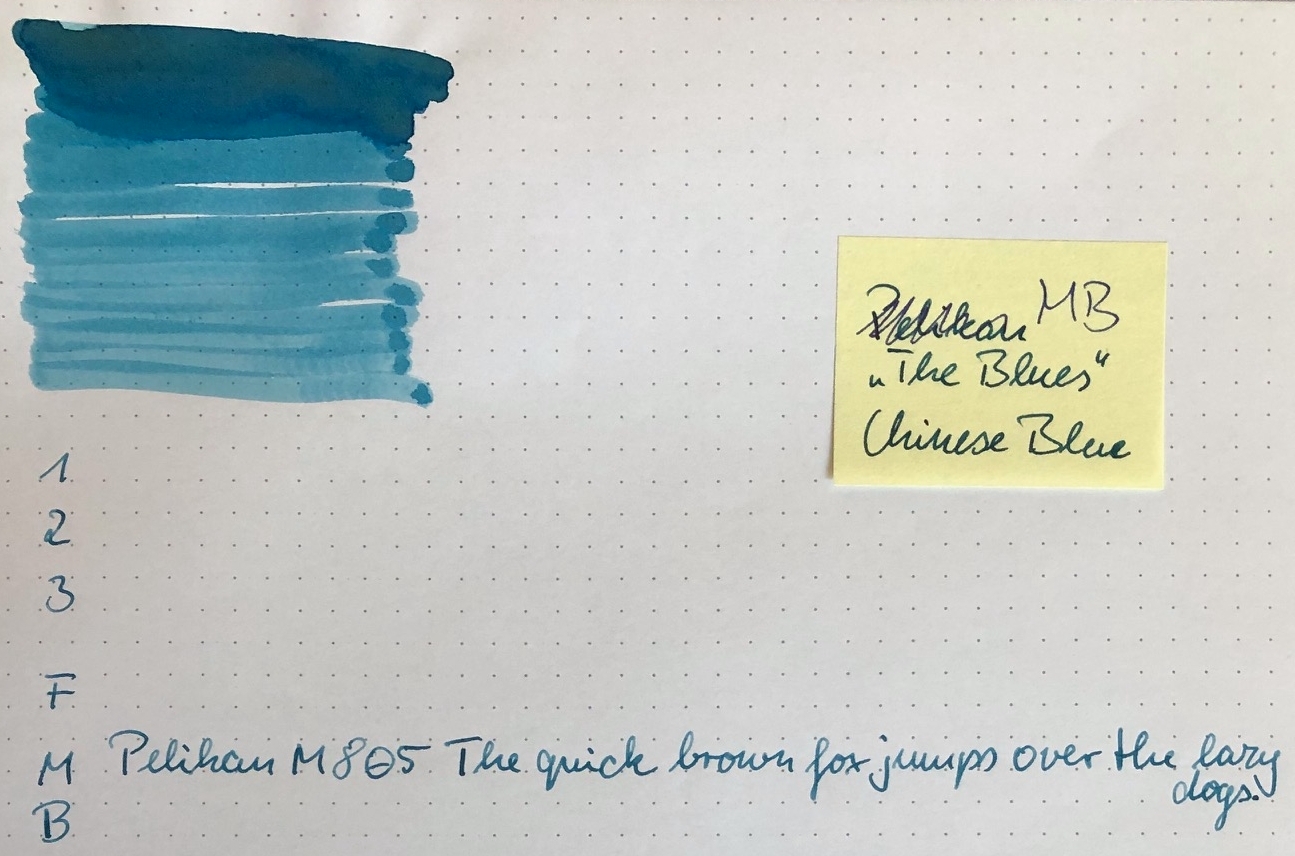 MB
„The Blues“
Chinese Blue
1
2
3
F
M Pelikan M805 The quick brown fox jumps over the lazy
dogs.
B